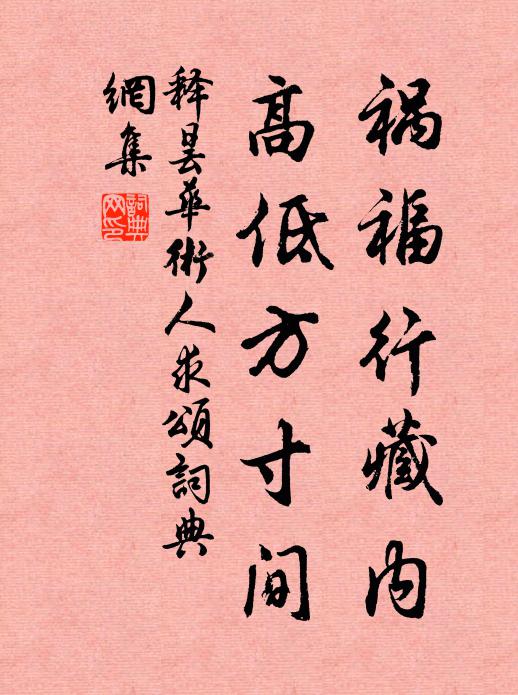 祸福行藏内
高低方寸间
释昙华术人求颂詞典
網集
詞典网印